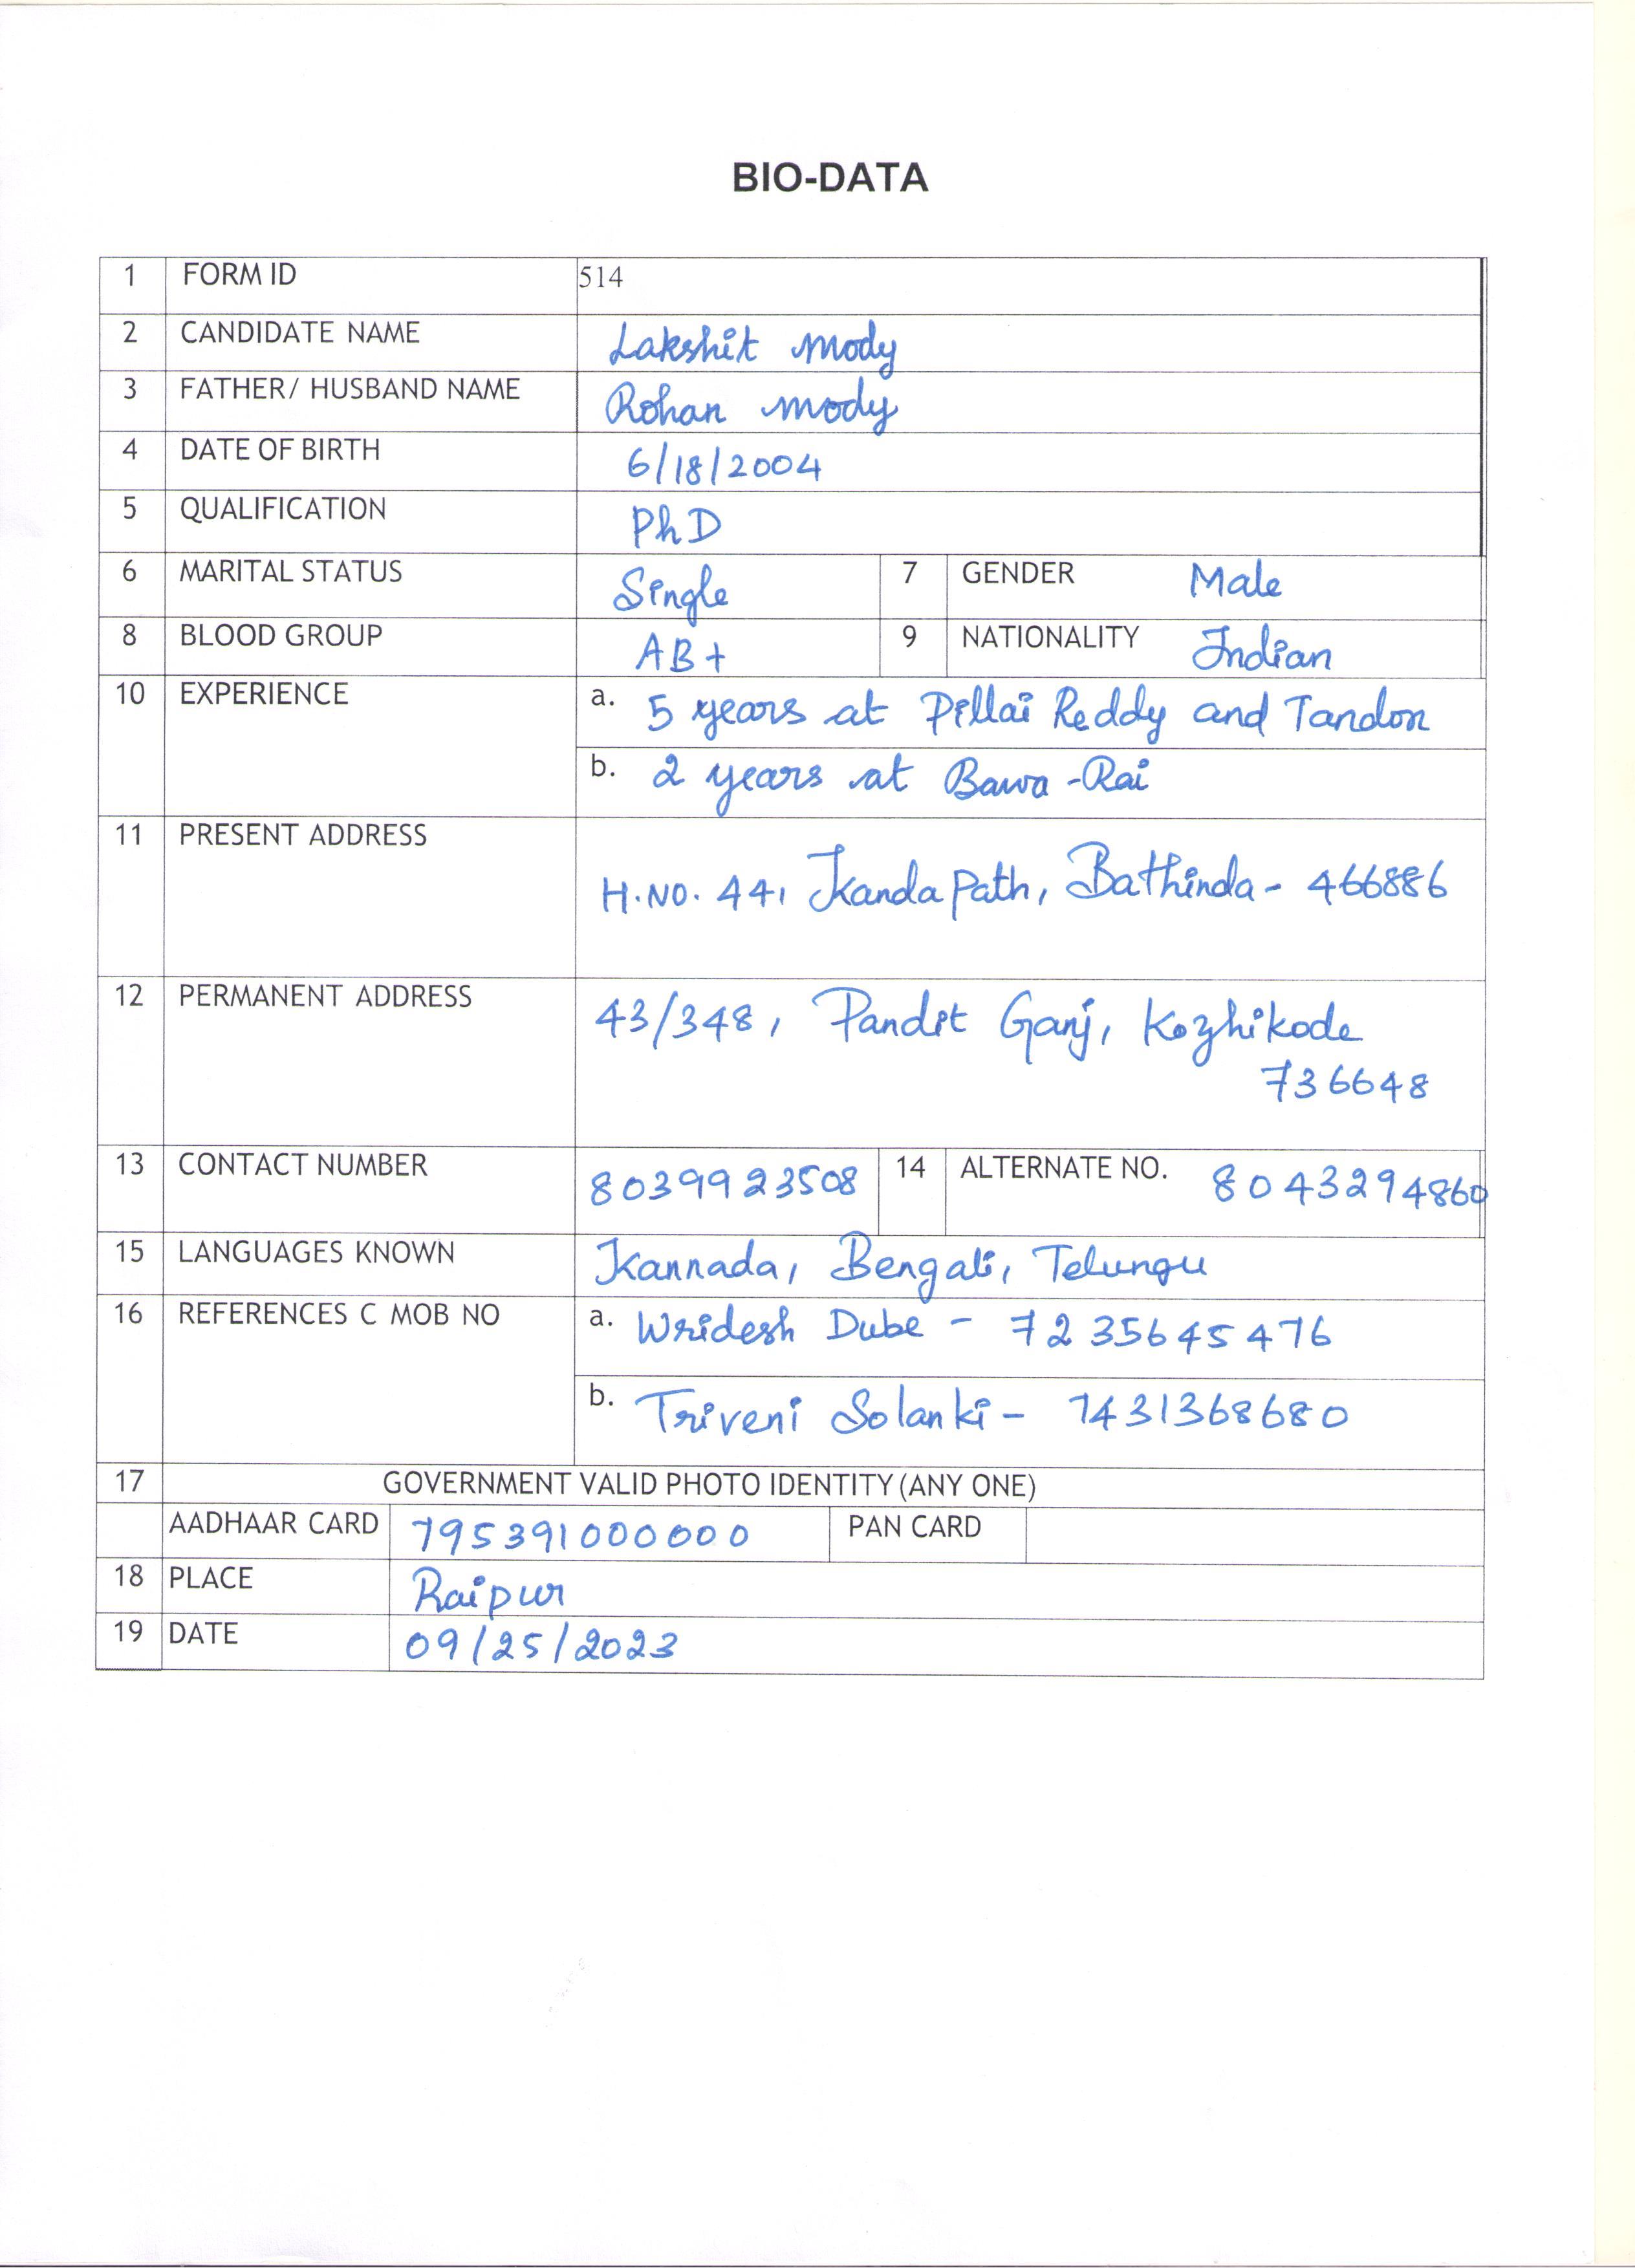 BIO-DATA
1 FORM ID 514
2 CANDIDATE NAME Lakshit Mody
3 FATHER/ HUSBAND NAME Rohan Mody
4 DATE OF BIRTH 6/18/2004
5 QUALIFICATION PhD
6 MARITAL STATUS Single 7 GENDER Male
8 BLOOD GROUP AB+ 9 NATIONALITY Indian
10 EXPERIENCE a. 5 years at Pillai Reddy and Tandon
b. 2 years at Bawa-Rai
11 PRESENT ADDRESS
H.NO. 44, Kanda Path, Bathinda - 466886
12 PERMANENT ADDRESS 43/348, Pandit Ganj, Kozhikode
736648
13 CONTACT NUMBER 8039923508 14 ALTERNATE NO. 8043294860
15 LANGUAGES KNOWN Kannada, Bengali, Telungu
16 REFERENCES C MOB NO a. Wridesh Dube - 7235645476
b. Triveni Solanki - 7431368680
17 GOVERNMENT VALID PHOTO IDENTITY (ANY ONE)
AADHAAR CARD 795391000000 PAN CARD
18 PLACE Raipur
19 DATE 09/25/2023